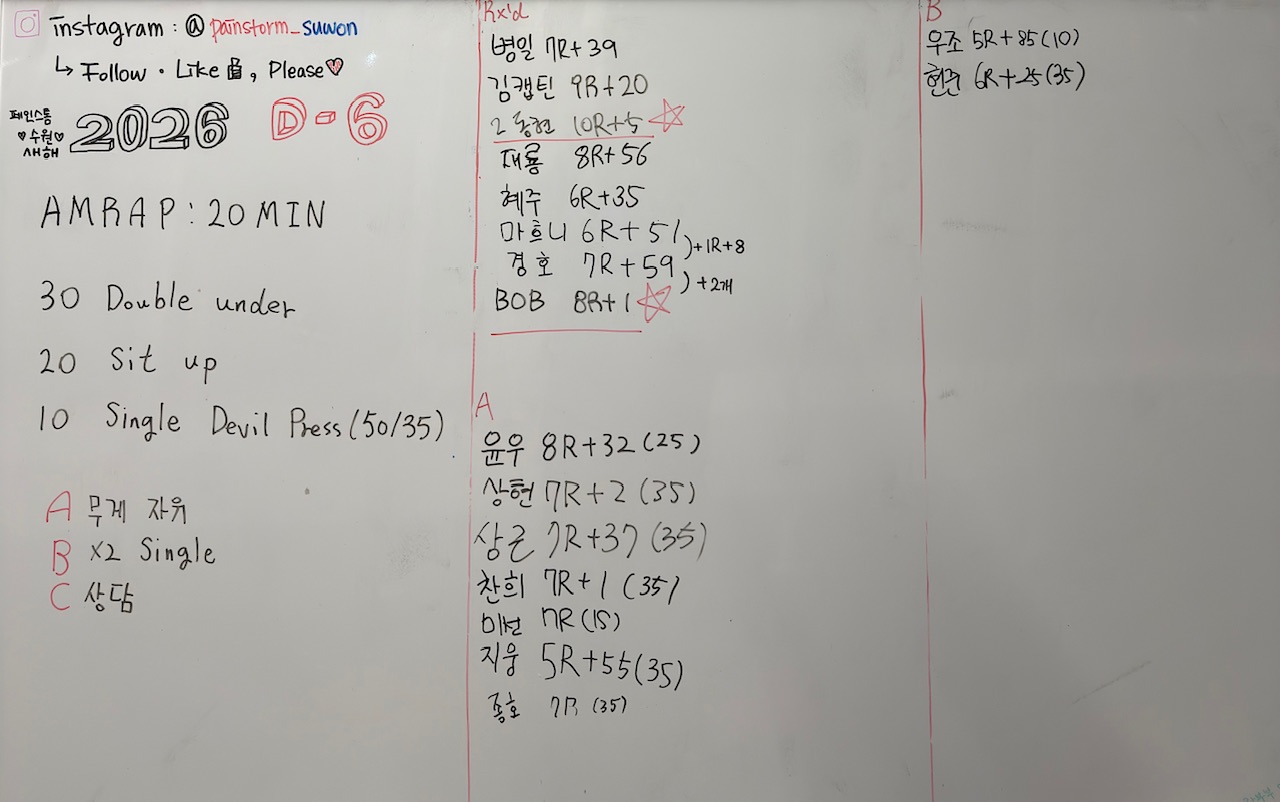 instagram : @ painstorm_suwon
↳ Follow · Like 👍, Please♡
페인스톰
♡수원♡
새해
2026 D-6
AMRAP : 20 MIN
30 Double under
20 Sit up
10 Single Devil Press (50/35)
A 무게 자유
B X2 Single
C 상담
Rx'd
병일 7R+39
김캡틴 9R+20
10R+5 ☆
재룡 8R+56
혜주 6R+35
마흐니 6R+51
)+1R+8
경호 7R+59
)+2개
BOB 8R+1 ☆
A
윤우 8R+32 (25)
상현 7R+2 (35)
상근 7R+37 (35)
찬희 7R+1 (35)
미선 7R (15)
지웅 5R+55 (35)
종호 7R (35)
B
우조 5R+85 (10)
현준 6R+25 (35)